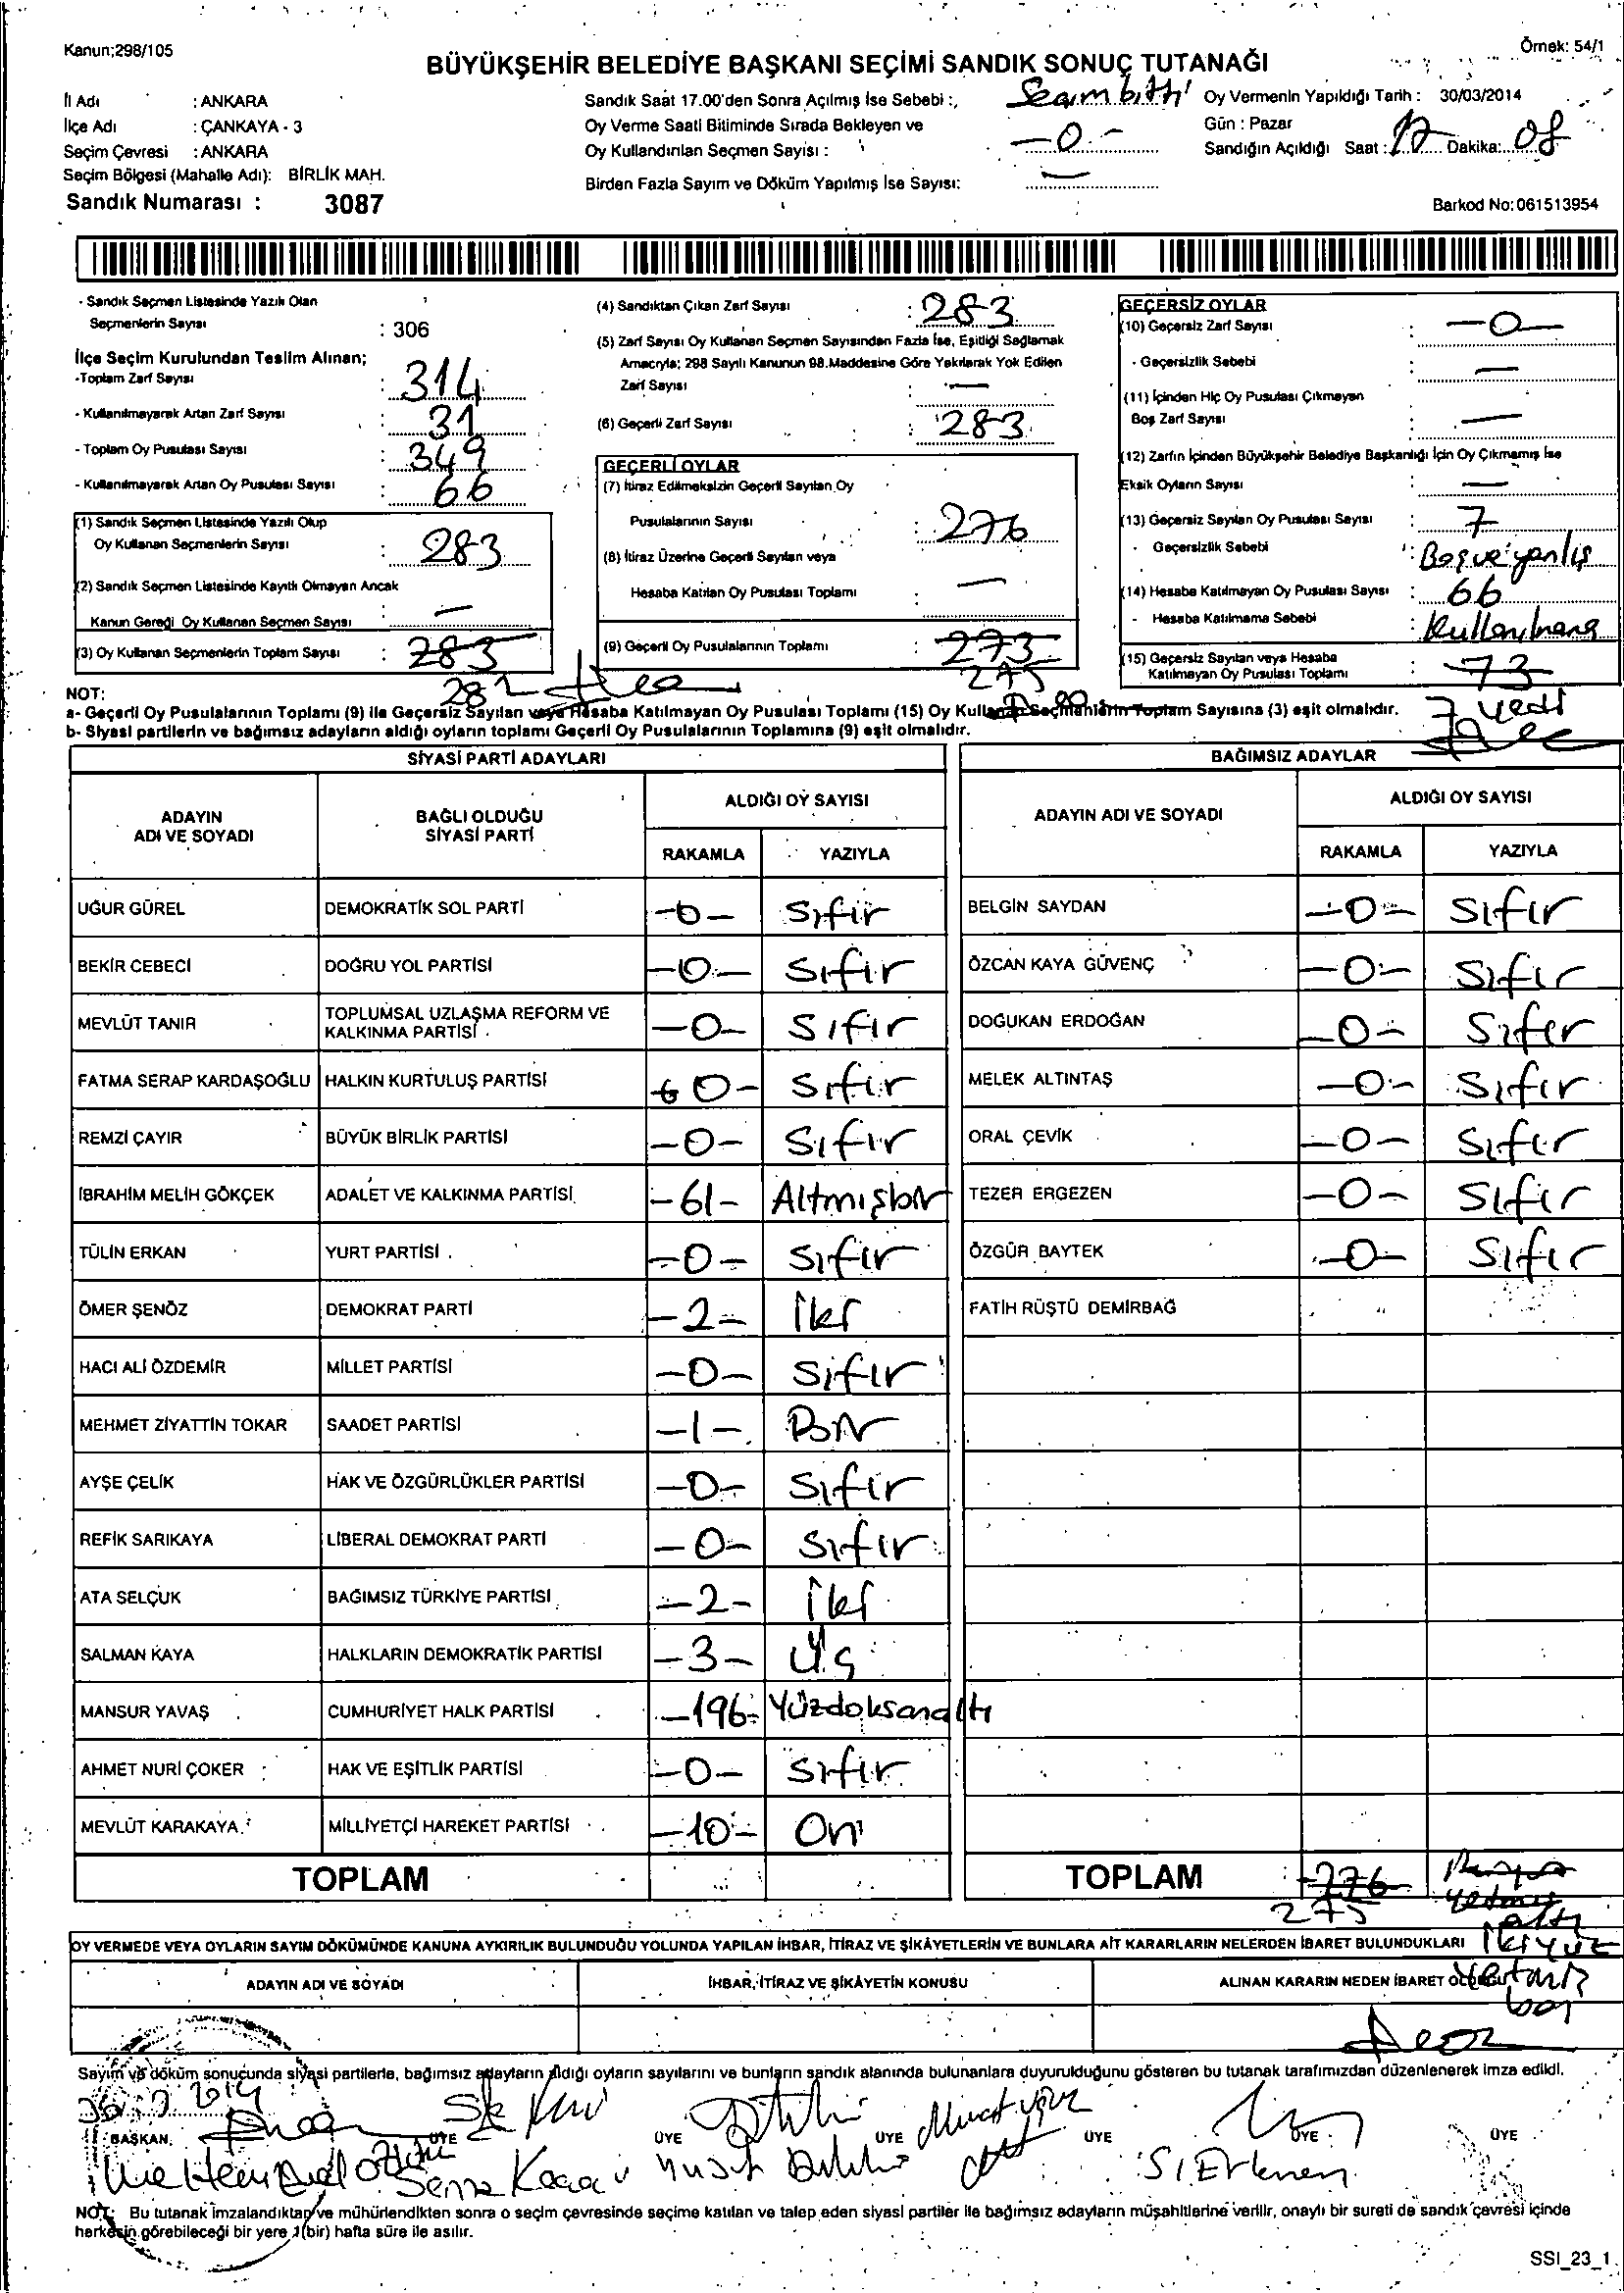 Kanun;298/105
Örnek: 54/1
BÜYÜKŞEHİR BELEDİYE BAŞKANI SEÇİMİ SANDIK SONUÇ TUTANAĞI
İl Adı : ANKARA
İlçe Adı : ÇANKAYA - 3
Seçim Çevresi : ANKARA
Seçim Bölgesi (Mahalle Adı): BİRLİK MAH.
Sandık Numarası : 3087
Sandık Saat 17.00'den Sonra Açılmış İse Sebebi : Seçim bitti
Oy Verme Saati Bitiminde Sırada Bekleyen ve
Oy Kullandırılan Seçmen Sayısı : -0-
Birden Fazla Sayım ve Döküm Yapılmış İse Sayısı: —
Oy Vermenin Yapıldığı Tarih : 30/03/2014
Gün : Pazar
Sandığın Açıldığı Saat : 17 Dakika: 08
Barkod No:061513954
- Sandık Seçmen Listesinde Yazılı Olan
Seçmenlerin Sayısı : 306
İlçe Seçim Kurulundan Teslim Alınan;
-Toplam Zarf Sayısı : 314
- Kullanılmayarak Artan Zarf Sayısı : 31
- Toplam Oy Pusulası Sayısı : 349
- Kullanılmayarak Artan Oy Pusulası Sayısı : 66
(1) Sandık Seçmen Listesinde Yazılı Olup
Oy Kullanan Seçmenlerin Sayısı : 283
(2) Sandık Seçmen Listesinde Kayıtlı Olmayan Ancak
Kanun Gereği Oy Kullanan Seçmen Sayısı : —
(3) Oy Kullanan Seçmenlerin Toplam Sayısı : 283
282
(4) Sandıktan Çıkan Zarf Sayısı : 283
(5) Zarf Sayısı Oy Kullanan Seçmen Sayısından Fazla İse, Eşitliği Sağlamak
Amacıyla; 298 Sayılı Kanunun 98.Maddesine Göre Yakılarak Yok Edilen
Zarf Sayısı : —
(6) Geçerli Zarf Sayısı : 283
GEÇERLİ OYLAR
(7) İtiraz Edilmeksizin Geçerli Sayılan Oy
Pusulalarının Sayısı : 276
(8) İtiraz Üzerine Geçerli Sayılan veya
Hesaba Katılan Oy Pusulası Toplamı : —
(9) Geçerli Oy Pusulalarının Toplamı : 273
275
GEÇERSİZ OYLAR
(10) Geçersiz Zarf Sayısı : -0-
- Geçersizlik Sebebi : —
(11) İçinden Hiç Oy Pusulası Çıkmayan
Boş Zarf Sayısı : —
(12) Zarfın İçinden Büyükşehir Belediye Başkanlığı İçin Oy Çıkmamış İse
Eksik Oyların Sayısı : —
(13) Geçersiz Sayılan Oy Pusulası Sayısı : 7
- Geçersizlik Sebebi : Boş ve yanlış
(14) Hesaba Katılmayan Oy Pusulası Sayısı : 66
- Hesaba Katılmama Sebebi :
(15) Geçersiz Sayılan veya Hesaba
Katılmayan Oy Pusulası Toplamı : 73
7 yedi
NOT:
a- Geçerli Oy Pusulalarının Toplamı (9) ile Geçersiz Sayılan veya Hesaba Katılmayan Oy Pusulası Toplamı (15) Oy Kullanan Seçmenlerin Toplam Sayısına (3) eşit olmalıdır.
b- Siyasi partilerin ve bağımsız adayların aldığı oyların toplamı Geçerli Oy Pusulalarının Toplamına (9) eşit olmalıdır.
SİYASİ PARTİ ADAYLARI
ADAYIN ADI VE SOYADI BAĞLI OLDUĞU SİYASİ PARTİ ALDIĞI OY SAYISI
RAKAMLA YAZIYLA
UĞUR GÜREL DEMOKRATİK SOL PARTİ -0- Sıfır
BEKİR CEBECİ DOĞRU YOL PARTİSİ -0- Sıfır
MEVLÜT TANIR TOPLUMSAL UZLAŞMA REFORM VE KALKINMA PARTİSİ -0- Sıfır
FATMA SERAP KARDAŞOĞLU HALKIN KURTULUŞ PARTİSİ 0- Sıfır
REMZİ ÇAYIR BÜYÜK BİRLİK PARTİSİ -0- Sıfır
İBRAHİM MELİH GÖKÇEK ADALET VE KALKINMA PARTİSİ -61- Altmışbir
TÜLİN ERKAN YURT PARTİSİ -0- Sıfır
ÖMER ŞENÖZ DEMOKRAT PARTİ -2- İki
HACI ALİ ÖZDEMİR MİLLET PARTİSİ -0- Sıfır
MEHMET ZİYATTİN TOKAR SAADET PARTİSİ -1- Bir
AYŞE ÇELİK HAK VE ÖZGÜRLÜKLER PARTİSİ -0- Sıfır
REFİK SARIKAYA LİBERAL DEMOKRAT PARTİ -0- Sıfır
ATA SELÇUK BAĞIMSIZ TÜRKİYE PARTİSİ -2- İki
SALMAN KAYA HALKLARIN DEMOKRATİK PARTİSİ -3- Üç
MANSUR YAVAŞ CUMHURİYET HALK PARTİSİ -196- Yüzdoksanaltı
AHMET NURİ ÇOKER HAK VE EŞİTLİK PARTİSİ -0- Sıfır
MEVLÜT KARAKAYA MİLLİYETÇİ HAREKET PARTİSİ -10- On
TOPLAM
BAĞIMSIZ ADAYLAR
ADAYIN ADI VE SOYADI ALDIĞI OY SAYISI
RAKAMLA YAZIYLA
BELGİN SAYDAN -0- Sıfır
ÖZCAN KAYA GÜVENÇ -0- Sıfır
DOĞUKAN ERDOĞAN -0- Sıfır
MELEK ALTINTAŞ -0- Sıfır
ORAL ÇEVİK -0- Sıfır
TEZER ERGEZEN -0- Sıfır
ÖZGÜR BAYTEK -0- Sıfır
FATİH RÜŞTÜ DEMİRBAĞ
TOPLAM 276 yetmiş altı
275 İkiyüz yetmiş beş
OY VERMEDE VEYA OYLARIN SAYIM DÖKÜMÜNDE KANUNA AYKIRILIK BULUNDUĞU YOLUNDA YAPILAN İHBAR, İTİRAZ VE ŞİKÂYETLERİN VE BUNLARA AİT KARARLARIN NELERDEN İBARET BULUNDUKLARI
ADAYIN ADI VE SOYADI İHBAR, İTİRAZ VE ŞİKÂYETİN KONUSU ALINAN KARARIN NEDEN İBARET OLDUĞU
Sayım ve döküm sonucunda siyasi partilerle, bağımsız adayların aldığı oyların sayılarını ve bunların sandık alanında bulunanlara duyurulduğunu gösteren bu tutanak tarafımızdan düzenlenerek imza edildi.
2014
BAŞKAN ÜYE ÜYE ÜYE ÜYE ÜYE ÜYE
NOT: Bu tutanak imzalandıktan ve mühürlendikten sonra o seçim çevresinde seçime katılan ve talep eden siyasi partiler ile bağımsız adayların müşahitlerine verilir, onaylı bir sureti de sandık çevresi içinde
herkesin görebileceği bir yere 1(bir) hafta süre ile asılır.
SSI_23_1